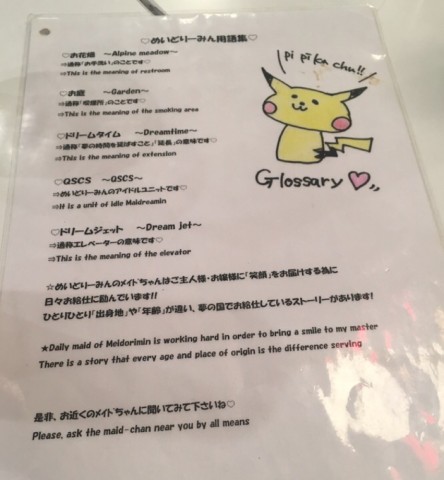 ♡めいどりーみん用語集♡
pi pi ka chu!!
♡お花場 ～Alpine meadow～
⇒通称「お手洗い」のことです♡
⇒This is the meaning of restroom
♡お庭 ～Garden～
⇒通称「喫煙所」のことです♡
⇒This is the meaning of the smoking area
♡ドリームタイム ～Dreamtime～
⇒通称「夢の時間を延ばすこと」「延長」の意味です♡
⇒This is the meaning of extension
Glossary ♡
♡QSCS ～QSCS～
⇒めいどりーみんのアイドルユニットです♡
⇒It is a unit of idle Maidreamin
♡ドリームジェット ～Dream jet～
⇒通称エレベーターの意味です♡
⇒This is the meaning of the elevator
☆めいどりーみんのメイドちゃんはご主人様・お嬢様に「笑顔」をお届けする為に
日々お給仕に励んでいます!!
ひとりひとり「出身地」や「年齢」が違い、夢の国でお給仕しているストーリーがあります!
★Daily maid of Meidorimin is working hard in order to bring a smile to my master
There is a story that every age and place of origin is the difference serving
是非、お近くのメイドちゃんに聞いてみて下さいね♡
Please, ask the maid-chan near you by all means